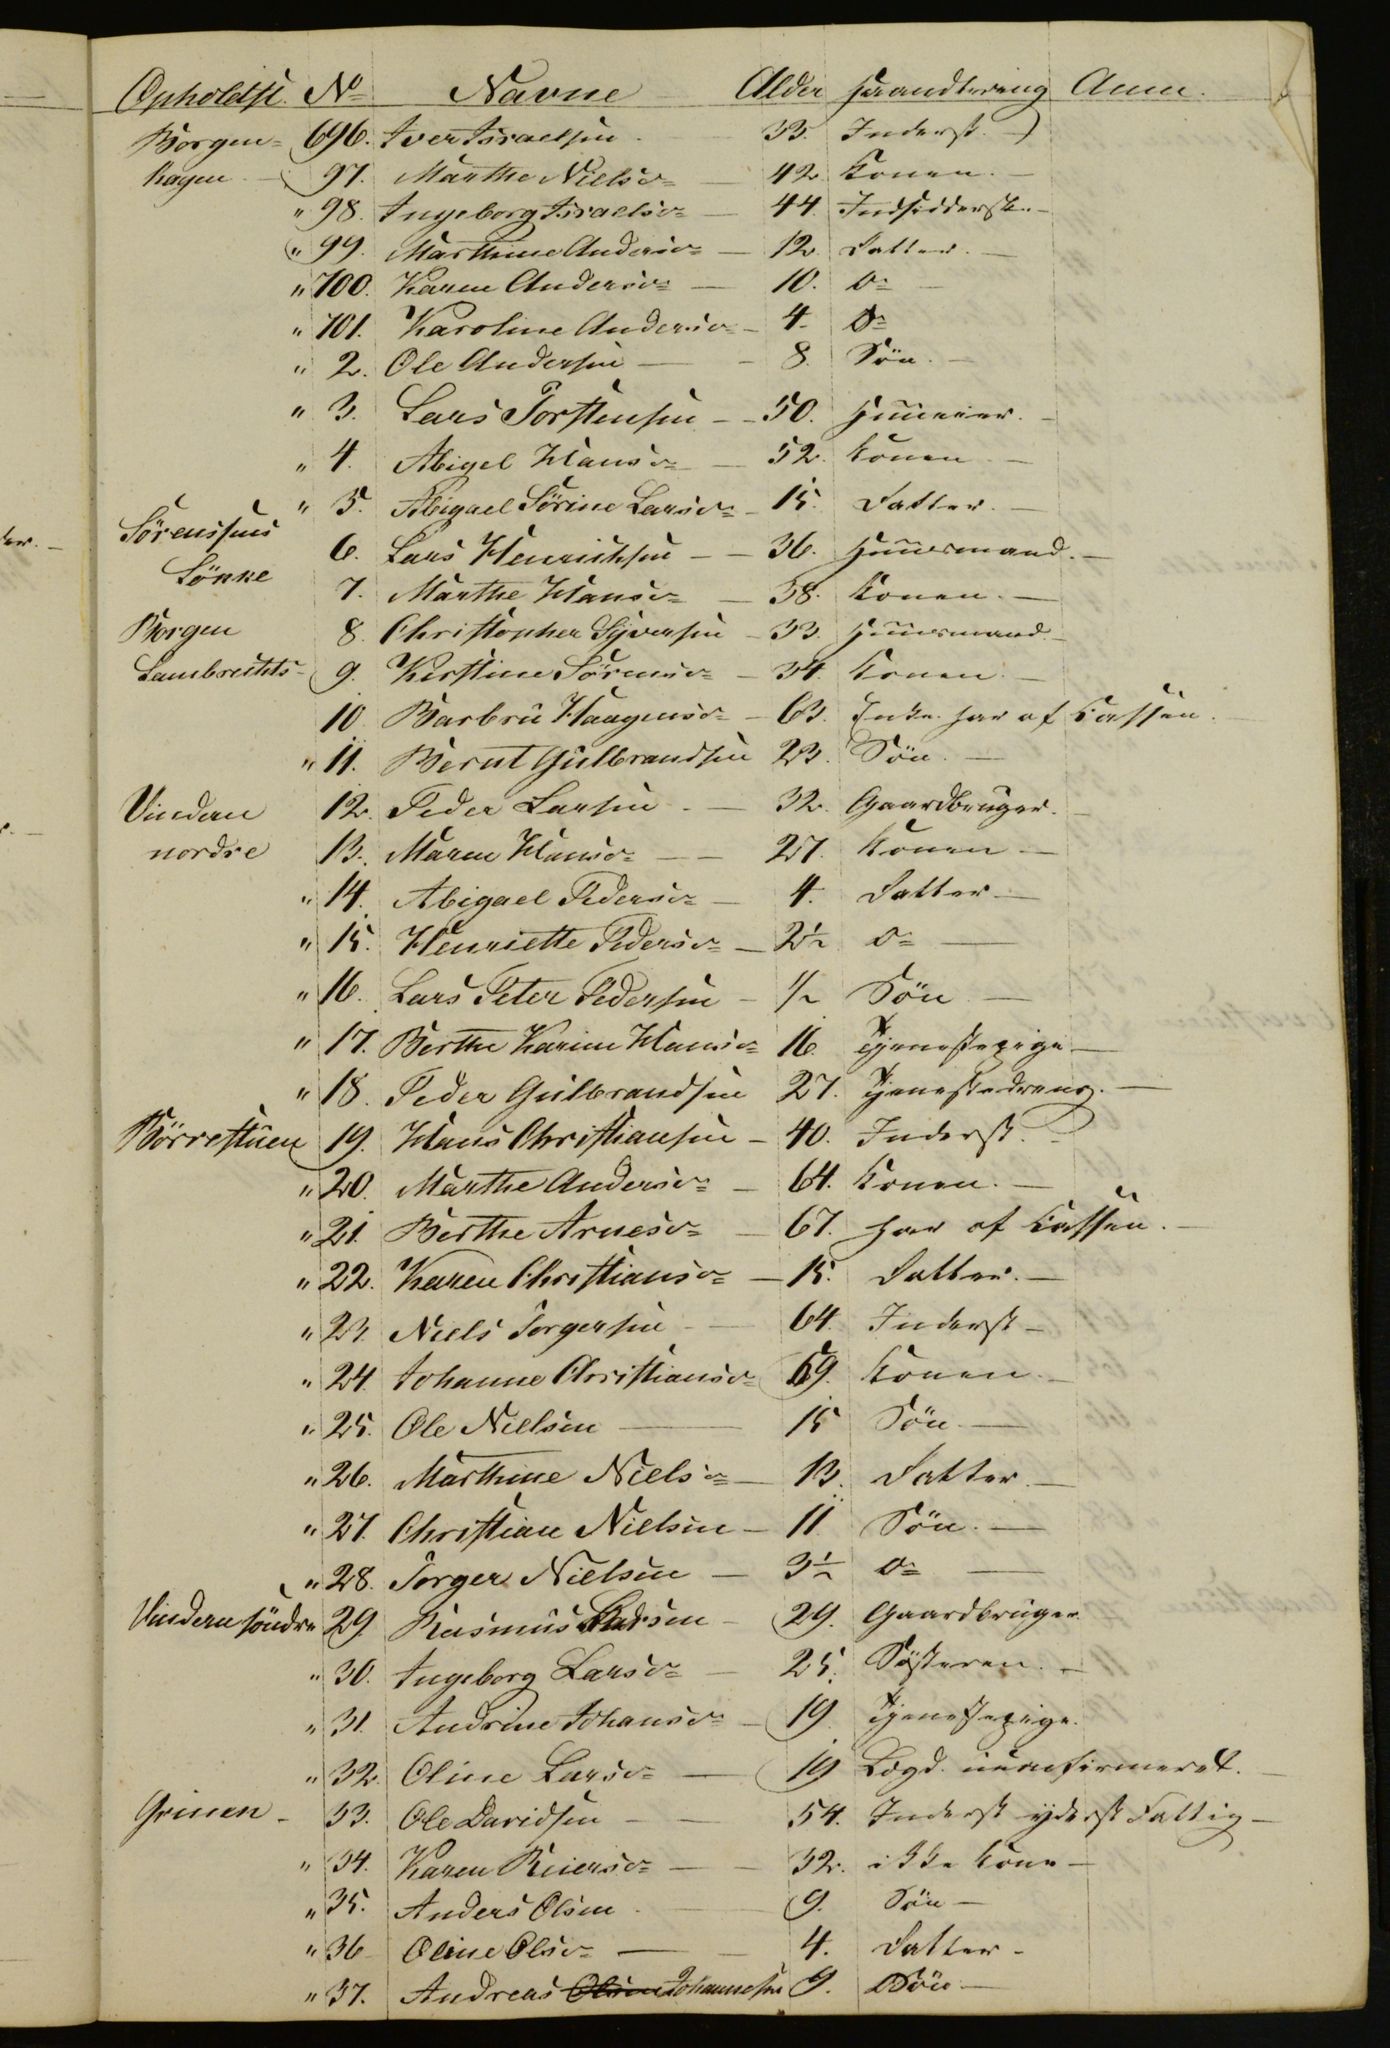 Opholdst. No Navne Alder Haandtering Anm.
Borgen- 696. Iver Israelsen 33. Inderst. -
hagen 97. Marthe Nielsd= 42 Konen. -
" 98. Ingeborg Israelsd= 44. Indsidderske. -
" 99. Marthine Andersd= 12 Datter. -
" 700. Karen Andersd= 10. do
" 701. Karoline Andersd= 4. Do
" 2. Ole Andersen 8. Søn. -
" 3. Lars Torstensen 50. Huuseier. -
" 4. Abigel Hansd= 52. Konen -
" 5. Abigael Sørine Larsd= 15. Datter. -
Sørenssens
6. Lars Henrichsen 36. Huusmand. -
Lønke
7. Marthe Hansd= 38. Konen. -
Borgen 8. Christopher Syversen 33. Huusmand -
Lambrechts- 9. Kirstine Sørensd= 34. Konen. -
10 Barbru Haagensd= 63. Enke har af Kassen.
" 11. Bernt Gulbrandsen 23. Søn. -
Vindern 12. Peder Larsen 32. Gaardbruger. -
nordre 13. Maren Hansd= 27. Konen -
" 14. Abigael Pedersd= 4. Datter -
" 15. Henriette Pedersd= 2½ do -
" 16. Lars Peter Pedersen ½ Søn -
" 17. Berthe Karine Hansd= 16 Tjenestepige -
" 18. Peder Gulbrandsen 27. Tjenestedreng. -
Børrestuen 19. Hans Christiansen 40. Inderst. -
" 20. Marthe Andersd= 64. Konen. -
" 21. Berthe Arnesd= 67. har af Kassen. -
" 22. Karen Christiansd= 15. Datter. -
" 23. Niels Torgersen 64. Inderst -
" 24. Johanne Christiansd= 59. Konen. -
" 25. Ole Nielsen 15 Søn -
" 26. Marthine Nielsd= 13. Datter. -
" 27. Christian Nielsen 11 Søn. -
" 28. Torger Nielsen 3½ do -
Vindern søndre 29. Rasmus Larsen 29. Gaardbruger
" 30. Ingeborg Larsd= 25. Søsteren. -
" 31. Andrine Johansd= 19. Tjenestepige.
" 32. Oline Larsd= 19 Lægd. uconfirmeret. -
Grinen - 33. Ole Davidsen 54. Inderst yderst Fattig -
" 34. Karen Reiersd= 32. ikke Kone -
" 35. Anders Olsen 9. Søn -
" 36 Oline Olsd= 4. Datter -
" 37. Andreas Olsen Johannesen 9. Søn -